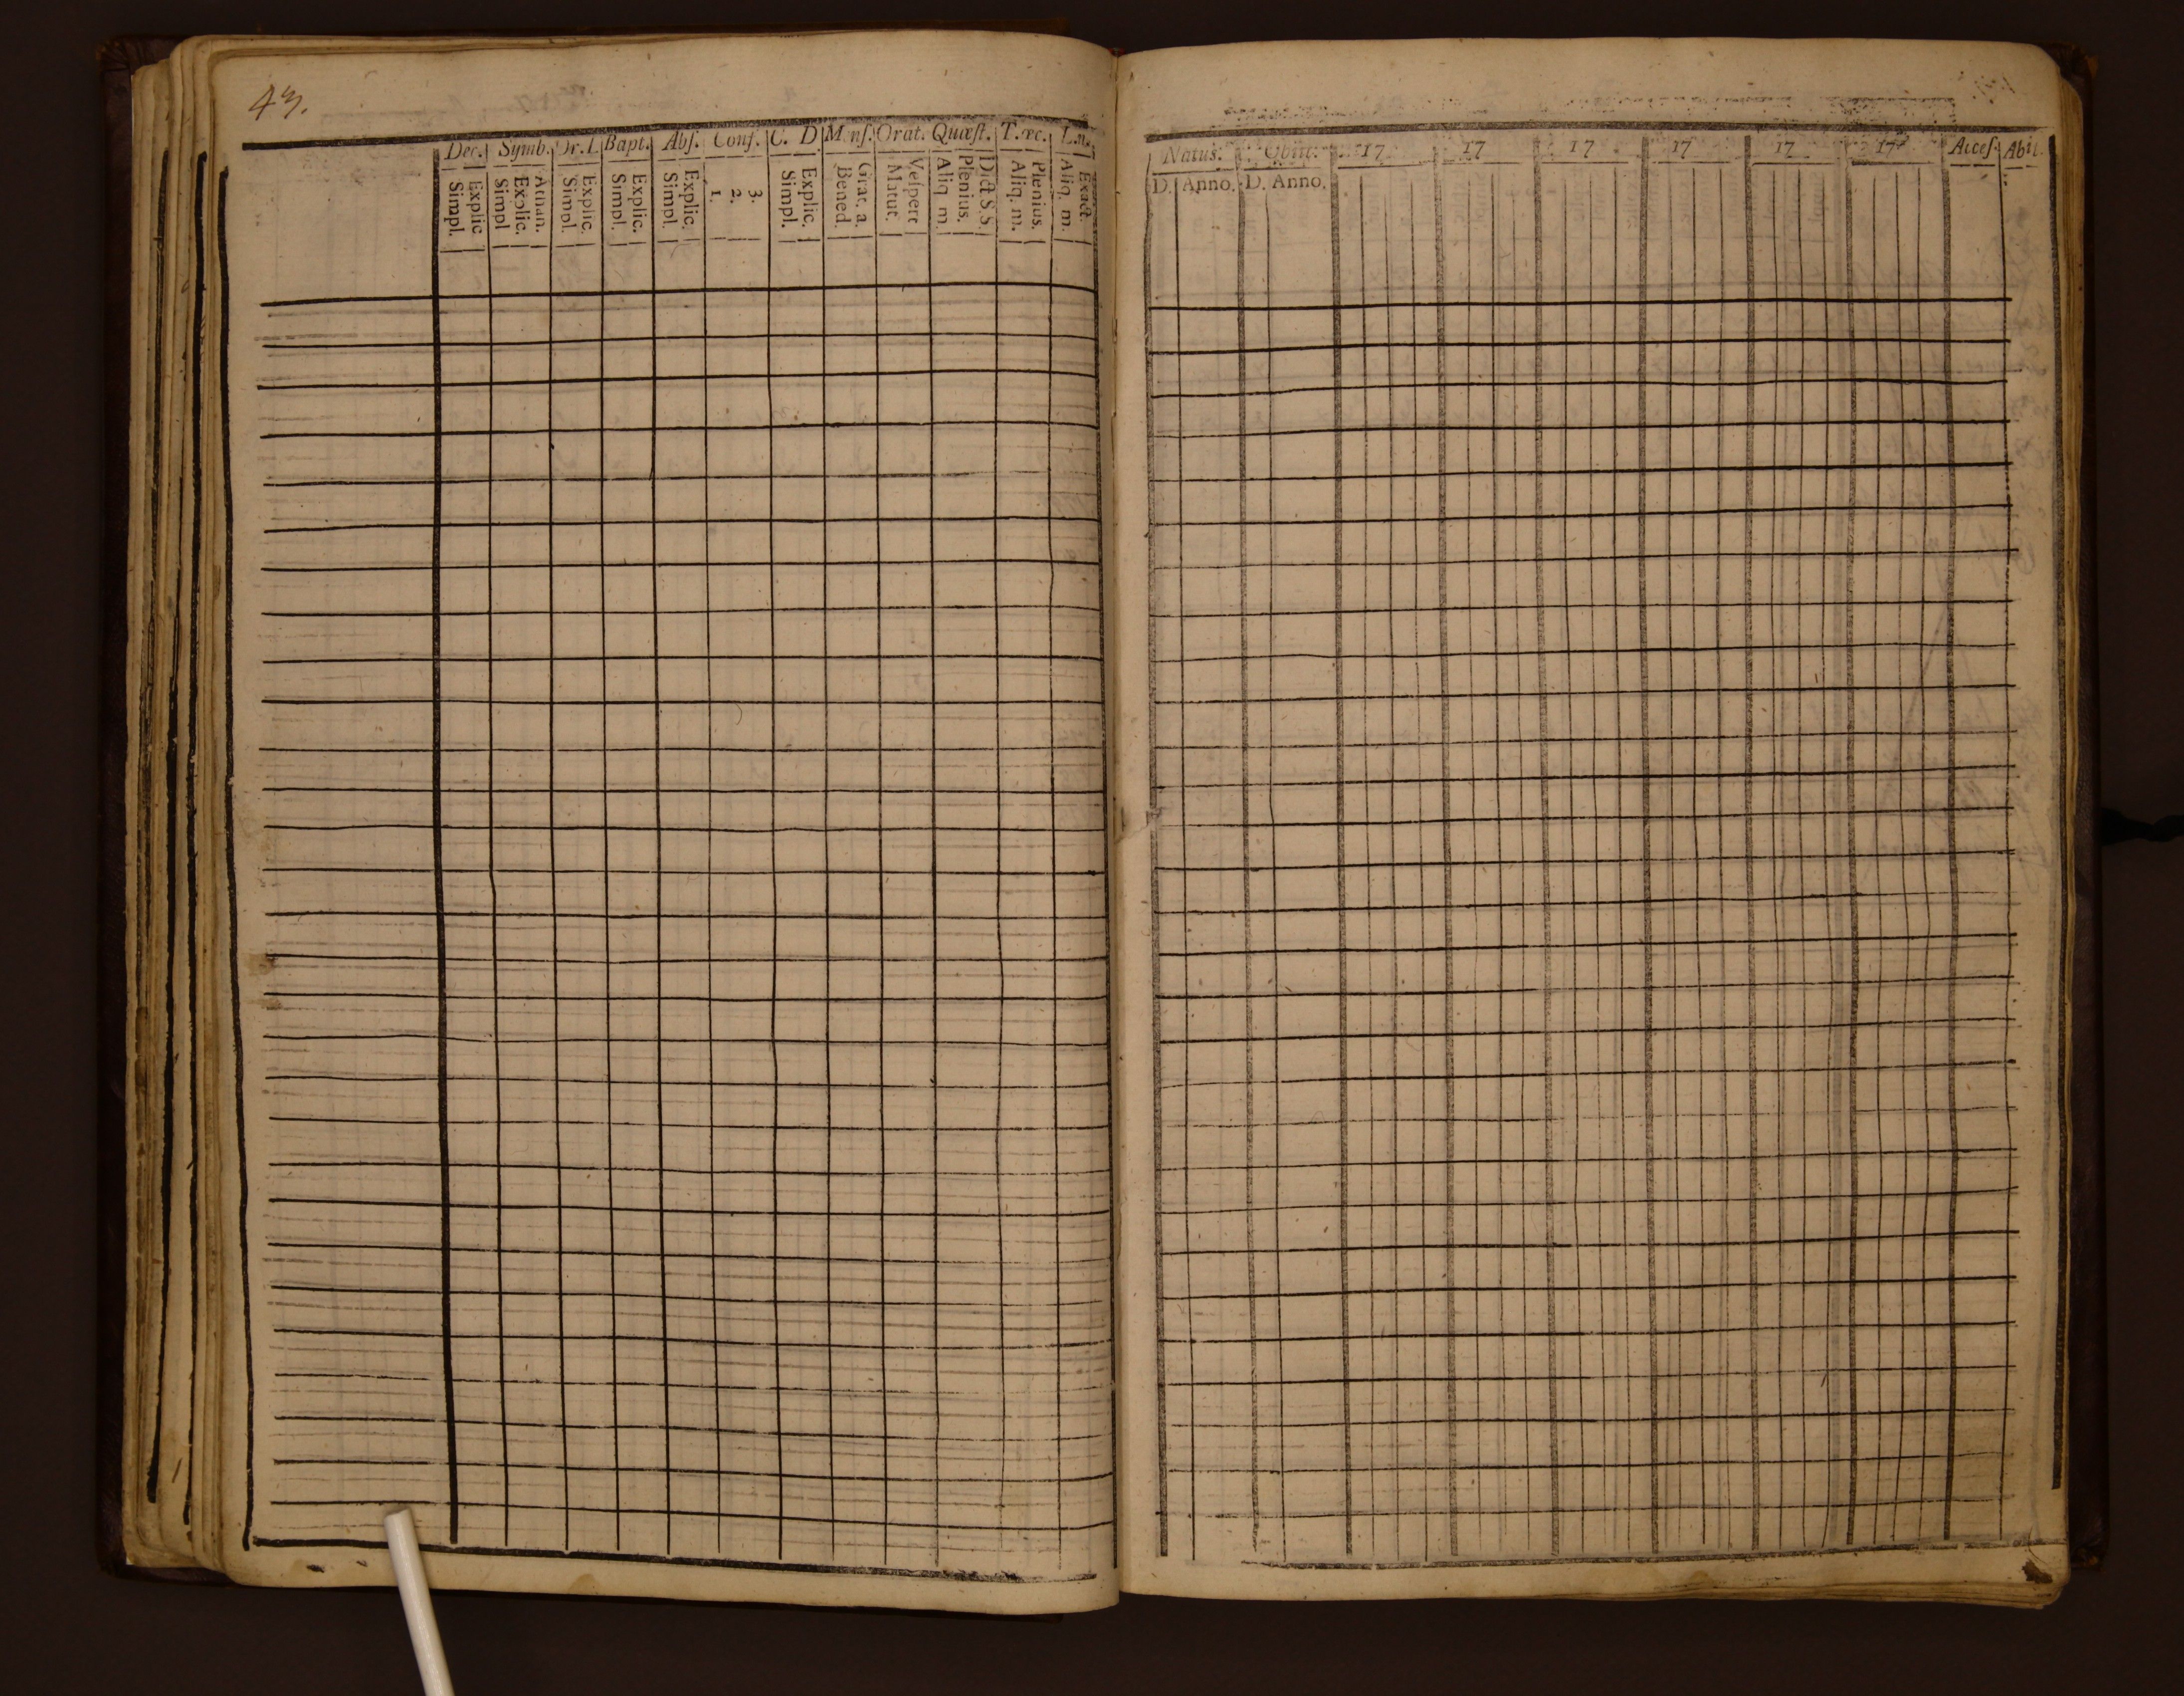 43.
Dec. Symb. Or. L Bapt. Abſ. Conf. C. D Menſ. Orat. Quæſt. T. œc. L.n.
Explic Simpl.
Athan. Explic. Simpl
Explic. Simpl.
Explic. Simpl.
Explic. Simpl.
3. 2. 1.
Explic. Simpl.
Grat. a. Bened.
Veſpere Matut.
Dict S.S. Plenius. Aliq m.
Plenius. Aliq. m.
Exact. Aliq. m.
Natus. Obiit. 17 17 17 17 17 17 Acceſ. Abit.
D. Anno. D. Anno.